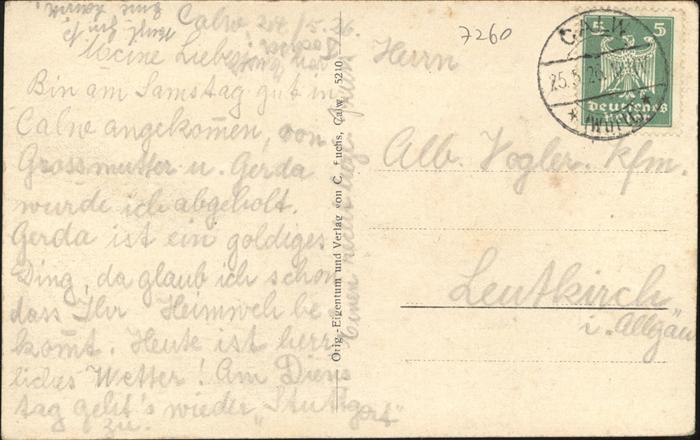 Calw 24/5.26.
Meine Lieben!
Bin am Samstag gut in
Calw angekom̄en, von
Grossmutter u. Gerda
wurde ich abgeholt.
Gerda ist ein goldiges
Ding, da glaub ich schon
dass Ihr Heimweh be
kom̄t. Heute ist herr
liches Wetter! Am Diens
tag geht's wieder „Stuttgart"
zu.
Einen
Orig.-Eigentum und Verlag von C. Fuchs, Calw 5210
7260
CALW
25.5.26
* (WÜRTT) *
5 5
Deutsches
Reich
Herrn
Alb. Vogler. Kfm.
Leutkirch
i. Allgäu